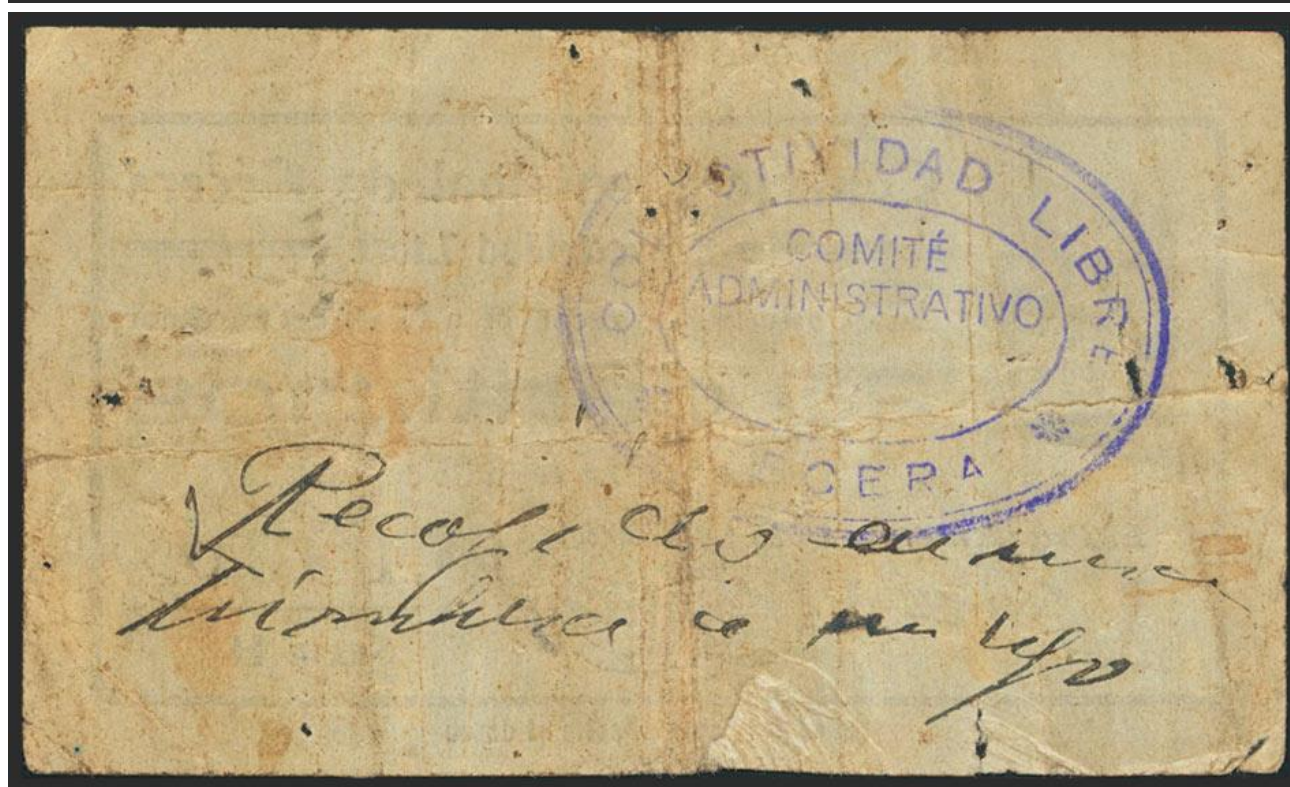 COLECTIVIDAD LIBRE
COMITÉ
ADMINISTRATIVO
Recogido en una
trinchera a un rojo